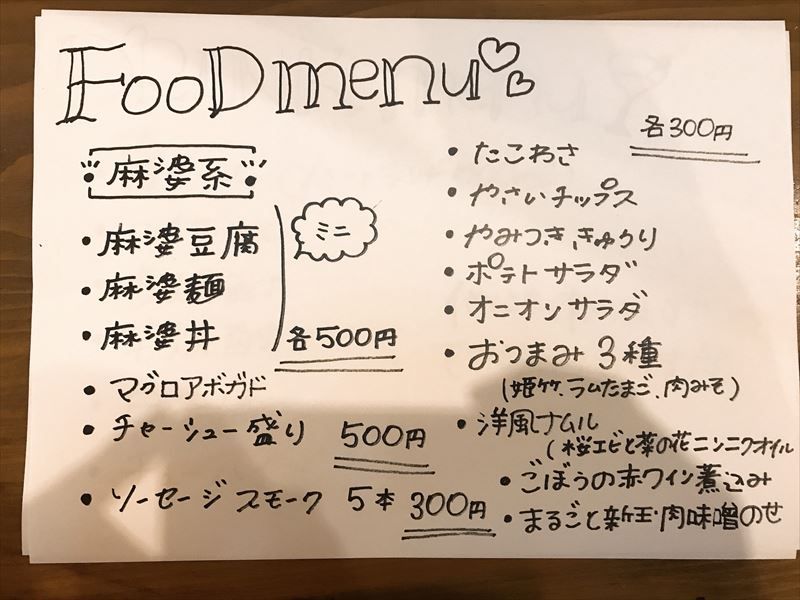 FooD menu
麻婆系
・麻婆豆腐
・麻婆麺
・麻婆丼
ミニ
各500円
・マグロアボガド
・チャーシュー盛り 500円
・ソーセージスモーク 5本 300円
各300円
・たこわさ
・やさいチップス
・やみつききゅうり
・ポテトサラダ
・オニオンサラダ
・おつまみ3種
(姫竹、ラムたまご、肉みそ)
・洋風ナムル
(桜エビと菜の花ニンニクオイル
・ごぼうの赤ワイン煮込み
・まるごと新玉・肉味噌のせ